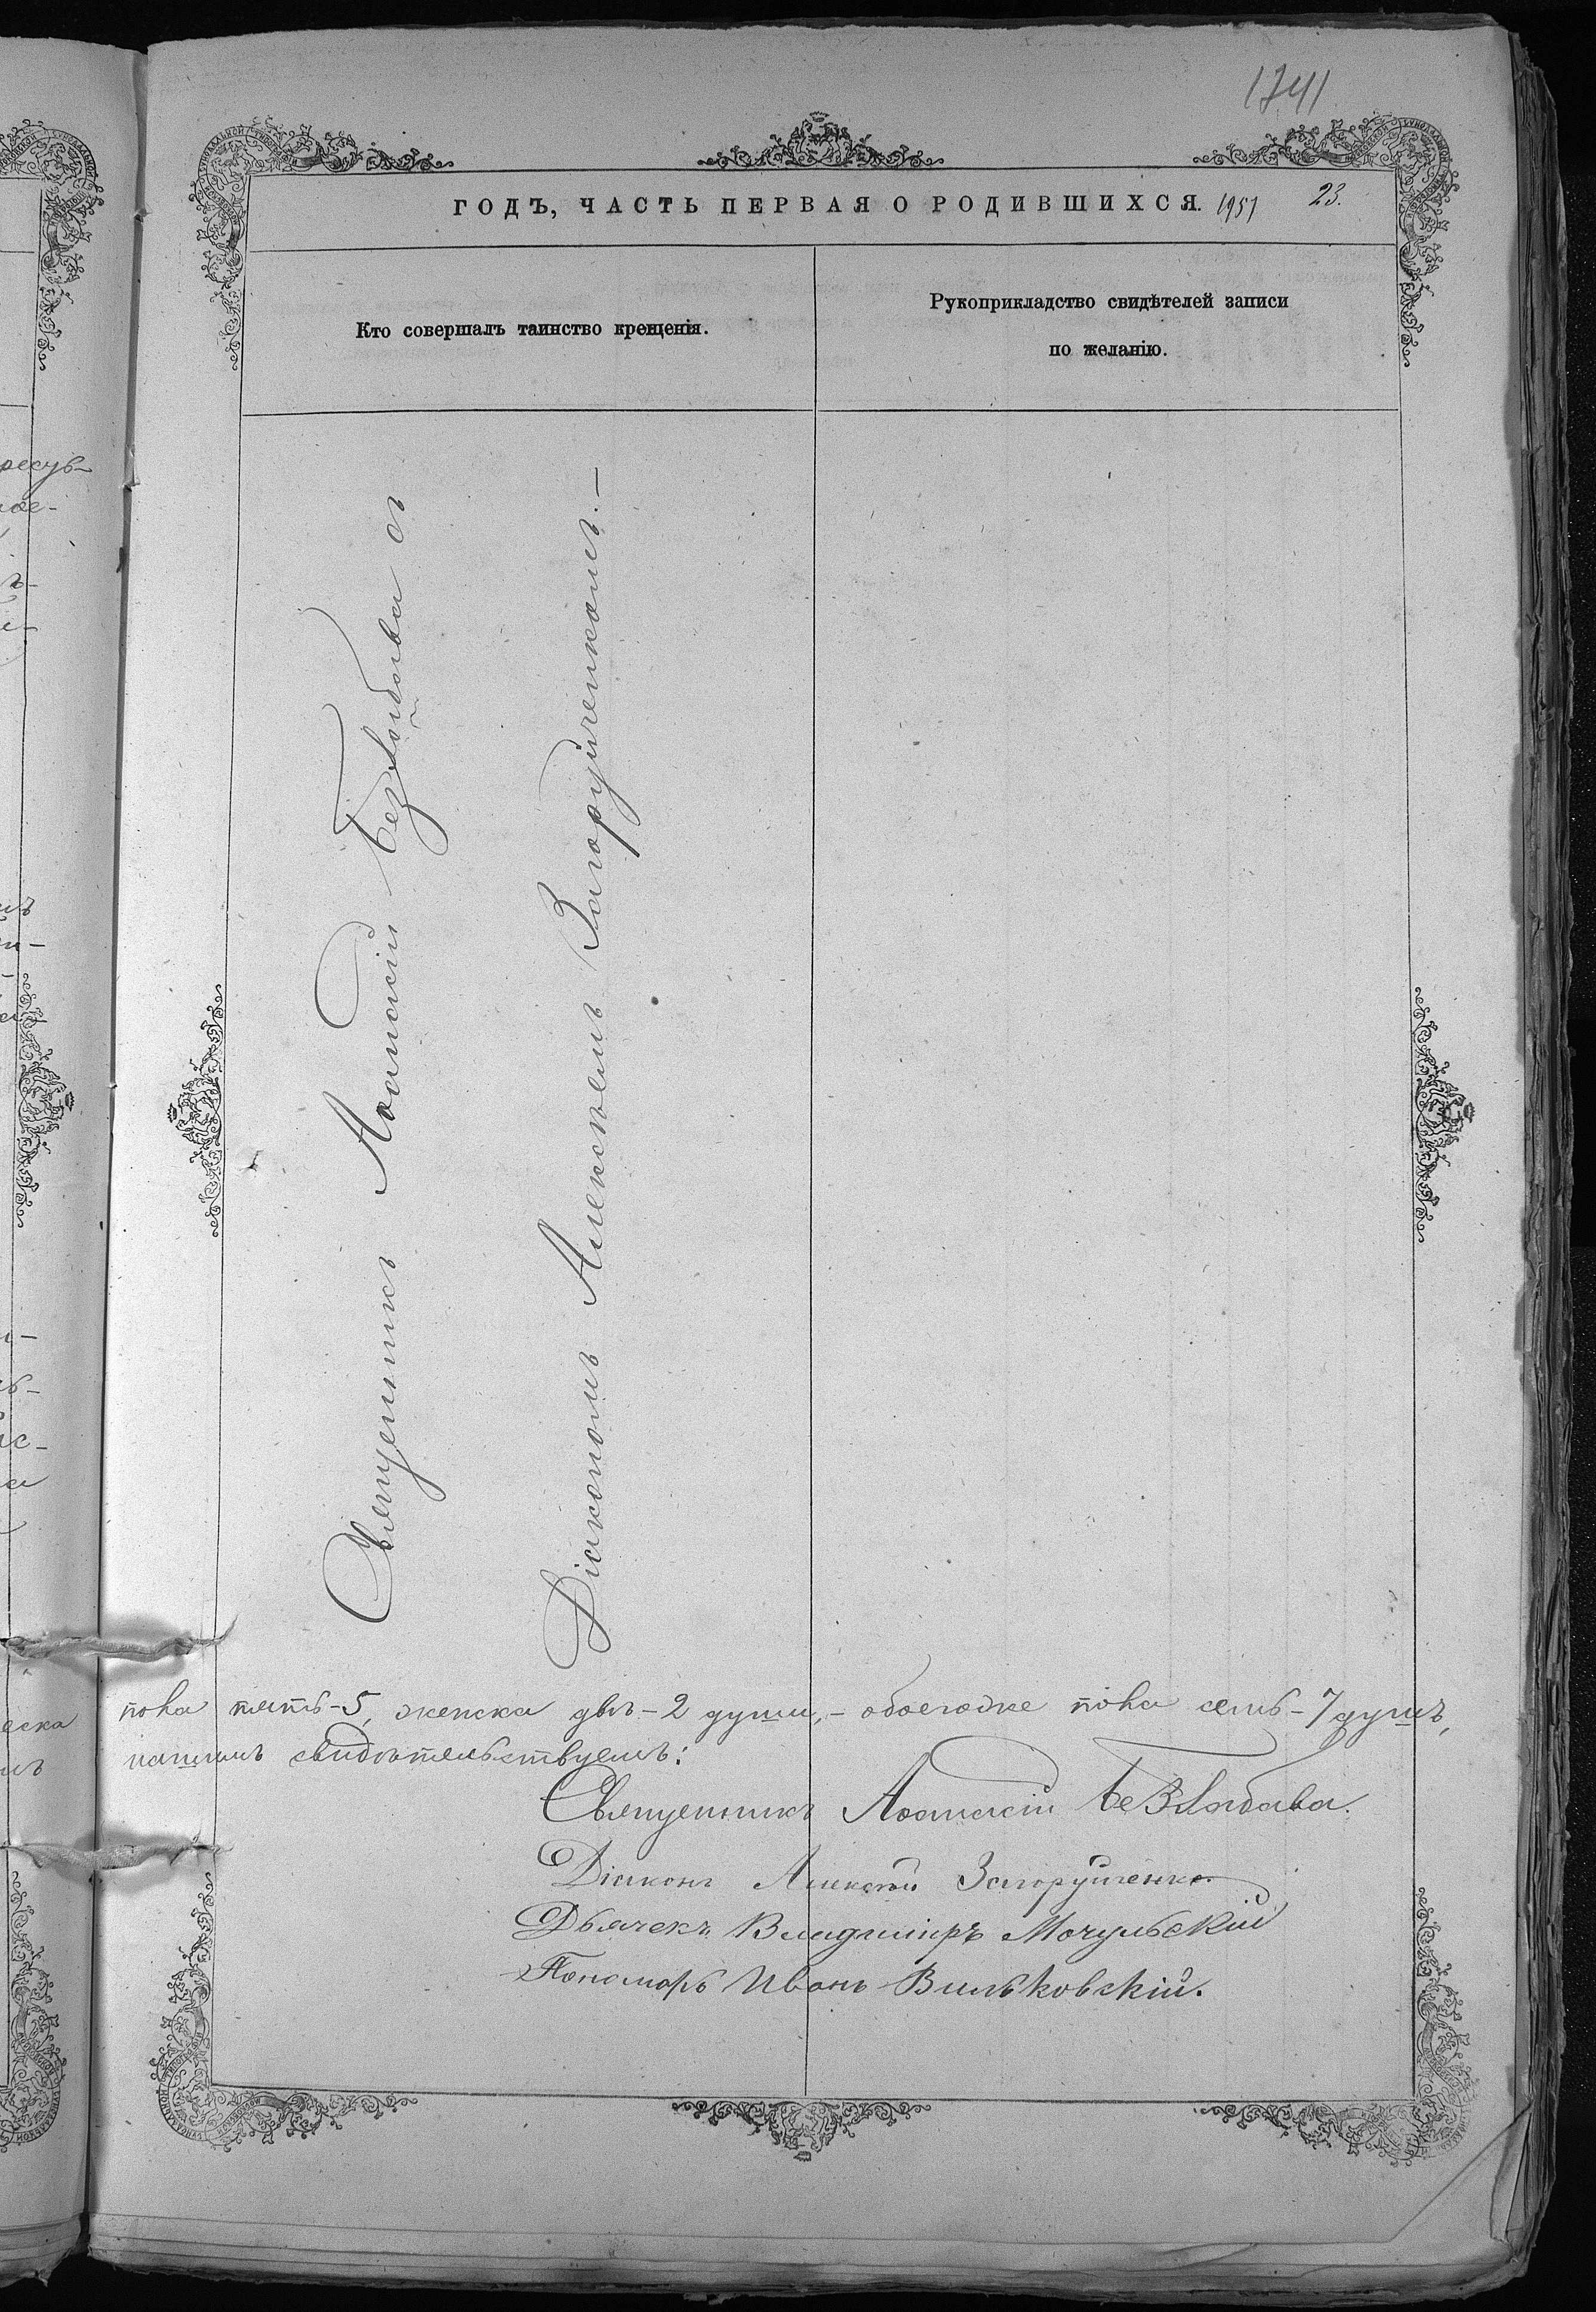 1741
ГОДЪ, ЧАСТЬ ПЕРВАЯ О РОДИВШИХСЯ. 1951 23.
Кто совершалъ таинство крещенія.
Рукоприкладство свидѣтелей записи
по желанію.
Священникъ Аѳанасій Безлюбава съ
Діакономъ Алексѣемъ Загоруйченкомъ. —
пола пять - 5, женска двѣ - 2 души, - обоегоже пола семь - 7 душъ,
нашимъ свидѣтельствуемъ:
Священникъ Аѳанасій Безлюбава.
Діаконъ Алексѣй Загоруйченко.
Дьячекъ Владиміръ Мочульскій
Пономарь Иванъ Вильковскій.